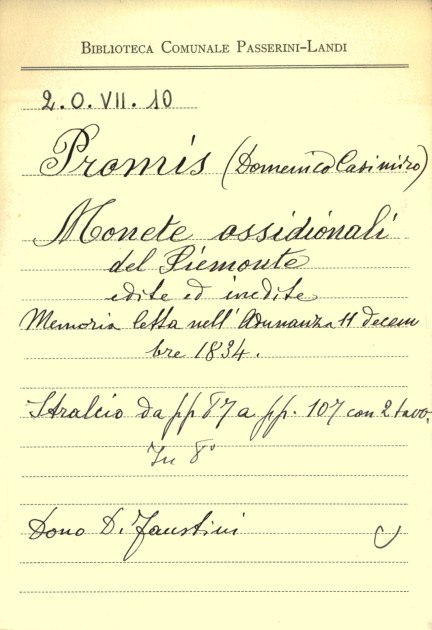 BIBLIOTECA COMUNALE PASSERINI-LANDI
2.0.VII.10
Promis (Domenico Casimiro)
Monete ossidionali
del Piemonte
edite ed inedite
Memoria letta nell'Adunanza 11 decem
bre 1834.
Stralcio da pp 87 a pp. 107 con 2 tavo.
In 8°
Dono D. Faustini